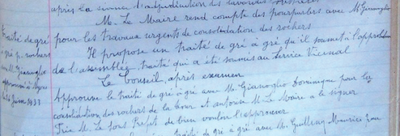 après la
M. Le Maire rend compte des pourparlers avec M. Gianoglio
pour les travaux urgents de consolidation des rochers
Il propose un traité de gré à gré qu'il soumet à l'approbation
de l'assemblée, traité qui a été soumis au Service Vicinal
Le Conseil, après examen
Approuve le traité de gré à gré avec M. Gianoglio Dominique pour la
consolidation des rochers de la et autorise M. le Maire à le signer
Prie M. Le Sous Préfet de bien vouloir l'approuver
traité de gré à gré avec M. Maurice pour
traité de gré
à gré p. rochers
approuvé
1931